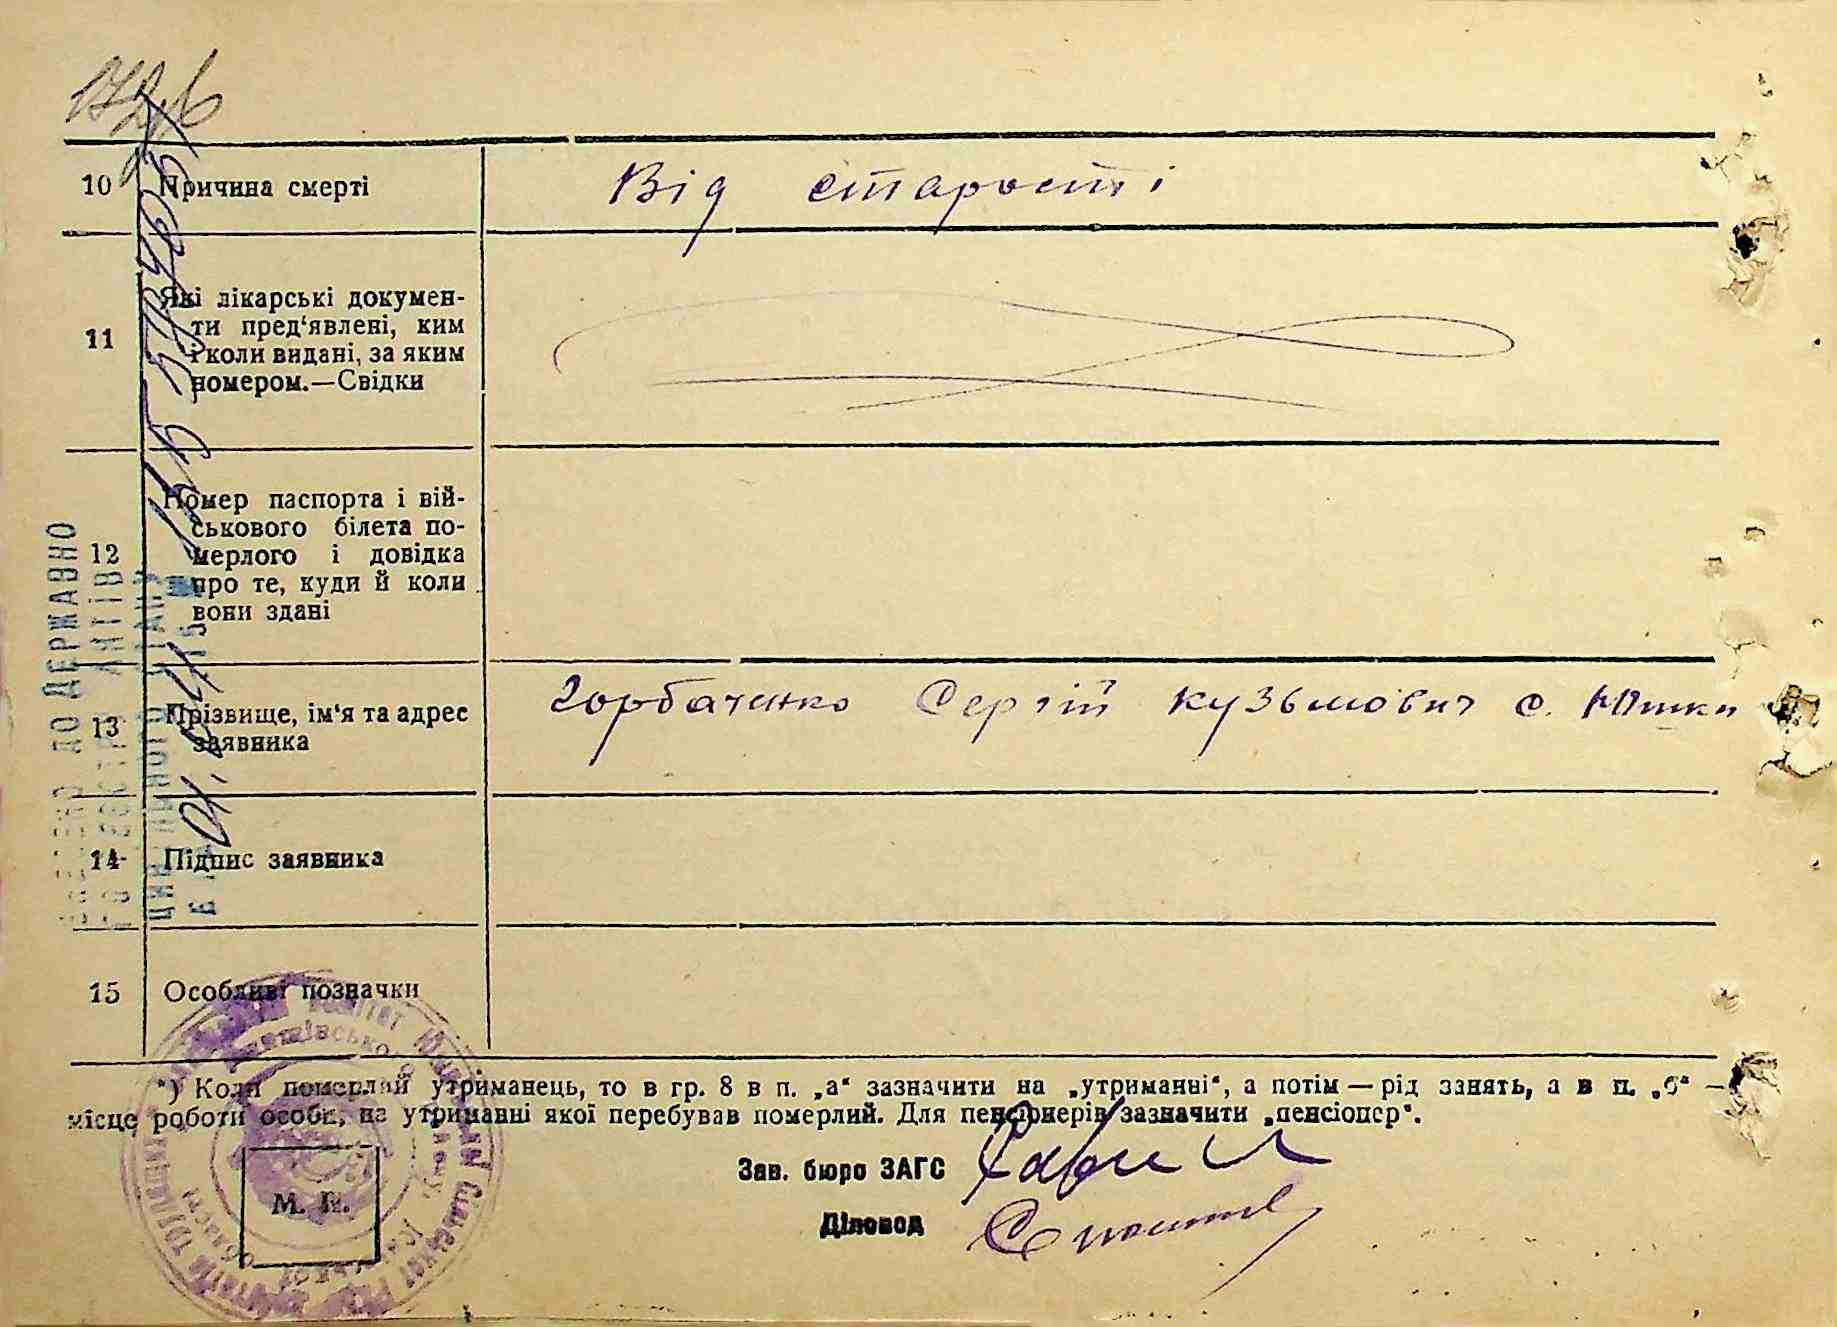 10 Причина смерті Від старости
11 Які лікарські докумен-
ти пред'явлені, ким
і коли видані, за яким
номером.—Свідки
12 Номер паспорта і вій-
ськового білета по-
мерлого і довідка
про те, куди й коли
вони здані
13 Прізвище, ім'я та адрес
заявника
Горбаченко Сергій Кузьмович с. Юшки
14 Підпис заявника
15 Особливі позначки
*) Коли померлий утриманець, то в гр. 8 в п. „а“ зазначити на „утриманні“, а потім — рід занять, а в п. „б“ —
місце роботи особи, на утриманні якої перебував померлий. Для пенсіонерів зазначити „пенсіонер“.
М. П.
Зав. бюро ЗАГС
Діловод
ДО ДЕРЖАВНО